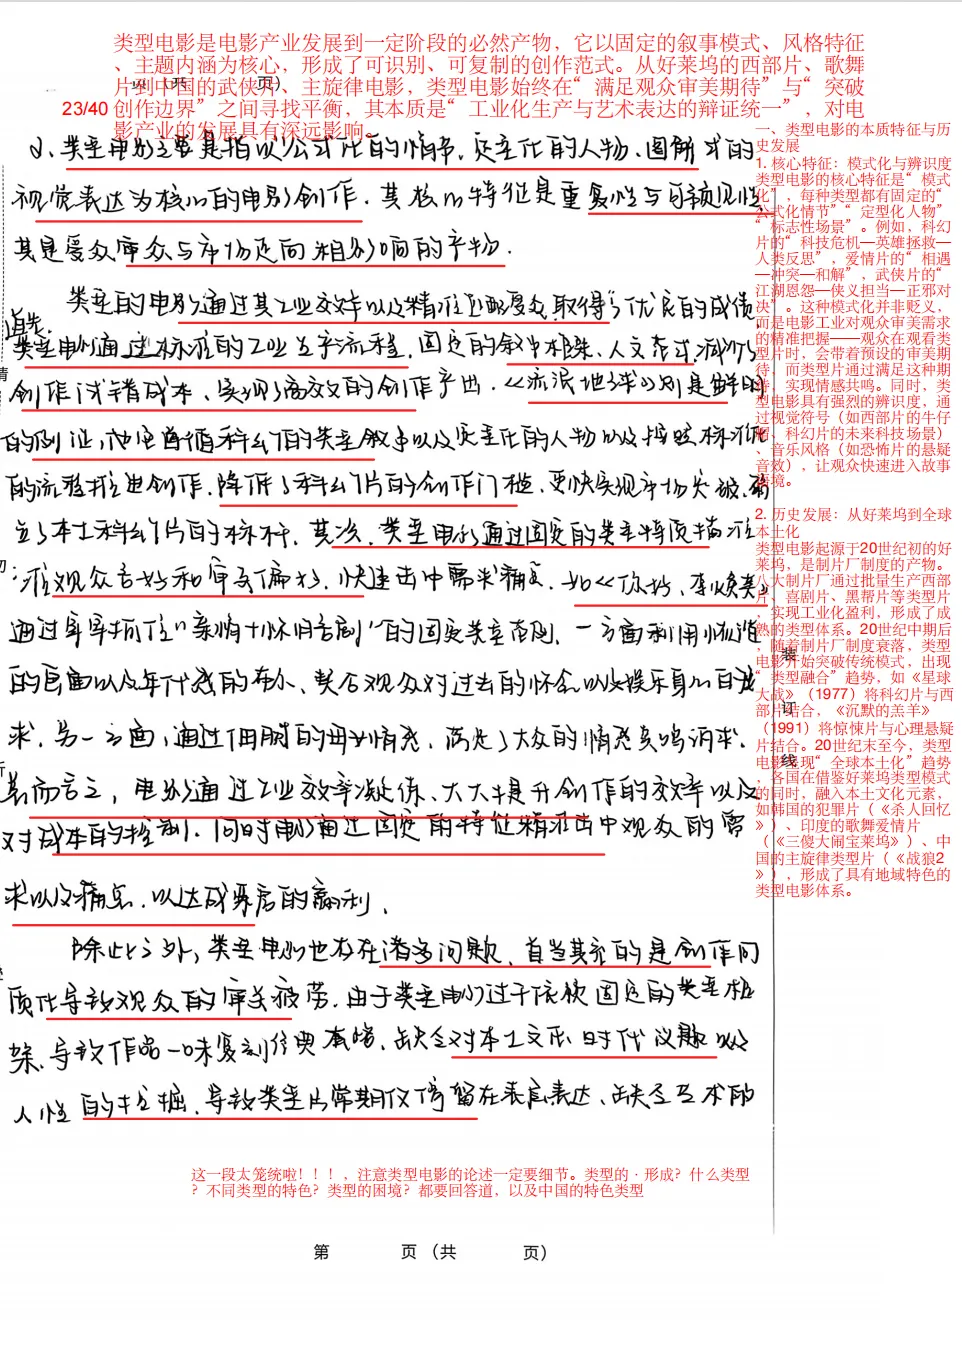 类型电影是电影产业发展到一定阶段的必然产物，它以固定的叙事模式、风格特征
、主题内涵为核心，形成了可识别、可复制的创作范式。从好莱坞的西部片、歌舞
片到中国的武侠片、主旋律电影，类型电影始终在“满足观众审美期待”与“突破
创作边界”之间寻找平衡，其本质是“工业化生产与艺术表达的辩证统一”，对电
影产业的发展具有深远影响。
23/40
页)
2、类型电影主要是指以公式化的情节、定型化的人物、图解式的
视觉表达为核心的电影创作。其核心特征是重复性与可预见性
其是受众审众与市场走向相影响的产物.
类型的电影通过其工业效率以及精准匹配受众取得了优良的成绩
首先.
类型电影通过标准的工业生产流程，固定的叙事框架、人文范式，减少了
创作试错成本、实现了高效的创作产出.《流浪地球》则是鲜明
的例证，他遵循科幻片的类型叙事以及定型化的人物以及按照标准
的流程推进创作，降低了科幻片的创作门槛，更快实现市场突破，
立了本土科幻片的标杆。其次，类型电影通过固定的类型特质精准
观众喜好和审美偏好，快速击中需求痛点，如《你好，李焕英》
通过牢牢抓住“亲情+怀旧喜剧”的固定类型范则，一方面利用诙谐
的画面以及年代感的布小、契合观众对过去的怀念以及娱乐身心的
求，另一方面，通过细腻的母女情感，满足了大众的情感共鸣诉求.
总而言之，电影通过工业效率凝练、大大提升创作的效率以及
对成本的控制，同时电影通过固定的特征精准击中观众的需
求以及痛点，以达成票房的赢利、
除此之外，类型电影也存在诸多问题，首当其冲的是创作同
质化导致观众的审美疲劳，由于类型电影过于依赖固定的类型框
架、导致作品一味复刻经典套路，缺乏对本土文化、时代议题以及
人性的挖掘，导致类型片常期仅停留在表层表达、缺乏艺术的
一、类型电影的本质特征与历
史发展
1. 核心特征：模式化与辨识度
类型电影的核心特征是“模式
化”，每种类型都有固定的“
公式化情节”“定型化人物”
“标志性场景”。例如，科幻
片的“科技危机—英雄拯救—
人类反思”，爱情片的“相遇
—冲突—和解”，武侠片的“
江湖恩怨—侠义担当—正邪对
决”。这种模式化并非贬义，
而是电影工业对观众审美需求
的精准把握——观众在观看类
型片时，会带着预设的审美期
待，而类型片通过满足这种期
待，实现情感共鸣。同时，类
型电影具有强烈的辨识度，通
过视觉符号（如西部片的牛仔
帽、科幻片的未来科技场景）
、音乐风格（如恐怖片的悬疑
音效），让观众快速进入故事
语境。
2. 历史发展：从好莱坞到全球
本土化
类型电影起源于20世纪初的好
莱坞，是制片厂制度的产物。
八大制片厂通过批量生产西部
片、喜剧片、黑帮片等类型片
，实现工业化盈利，形成了成
熟的类型体系。20世纪中期后
，随着制片厂制度衰落，类型
电影开始突破传统模式，出现
“类型融合”趋势，如《星球
大战》（1977）将科幻片与西
部片结合，《沉默的羔羊》
（1991）将惊悚片与心理悬疑
片结合。20世纪末至今，类型
电影呈现“全球本土化”趋势
，各国在借鉴好莱坞类型模式
的同时，融入本土文化元素，
如韩国的犯罪片（《杀人回忆
》）、印度的歌舞爱情片
（《三傻大闹宝莱坞》）、中
国的主旋律类型片（《战狼2
》），形成了具有地域特色的
类型电影体系。
装
订
线
这一段太笼统啦！！！，注意类型电影的论述一定要细节。类型的·形成？什么类型
？不同类型的特色？类型的困境？都要回答道，以及中国的特色类型
第 页（共 页）